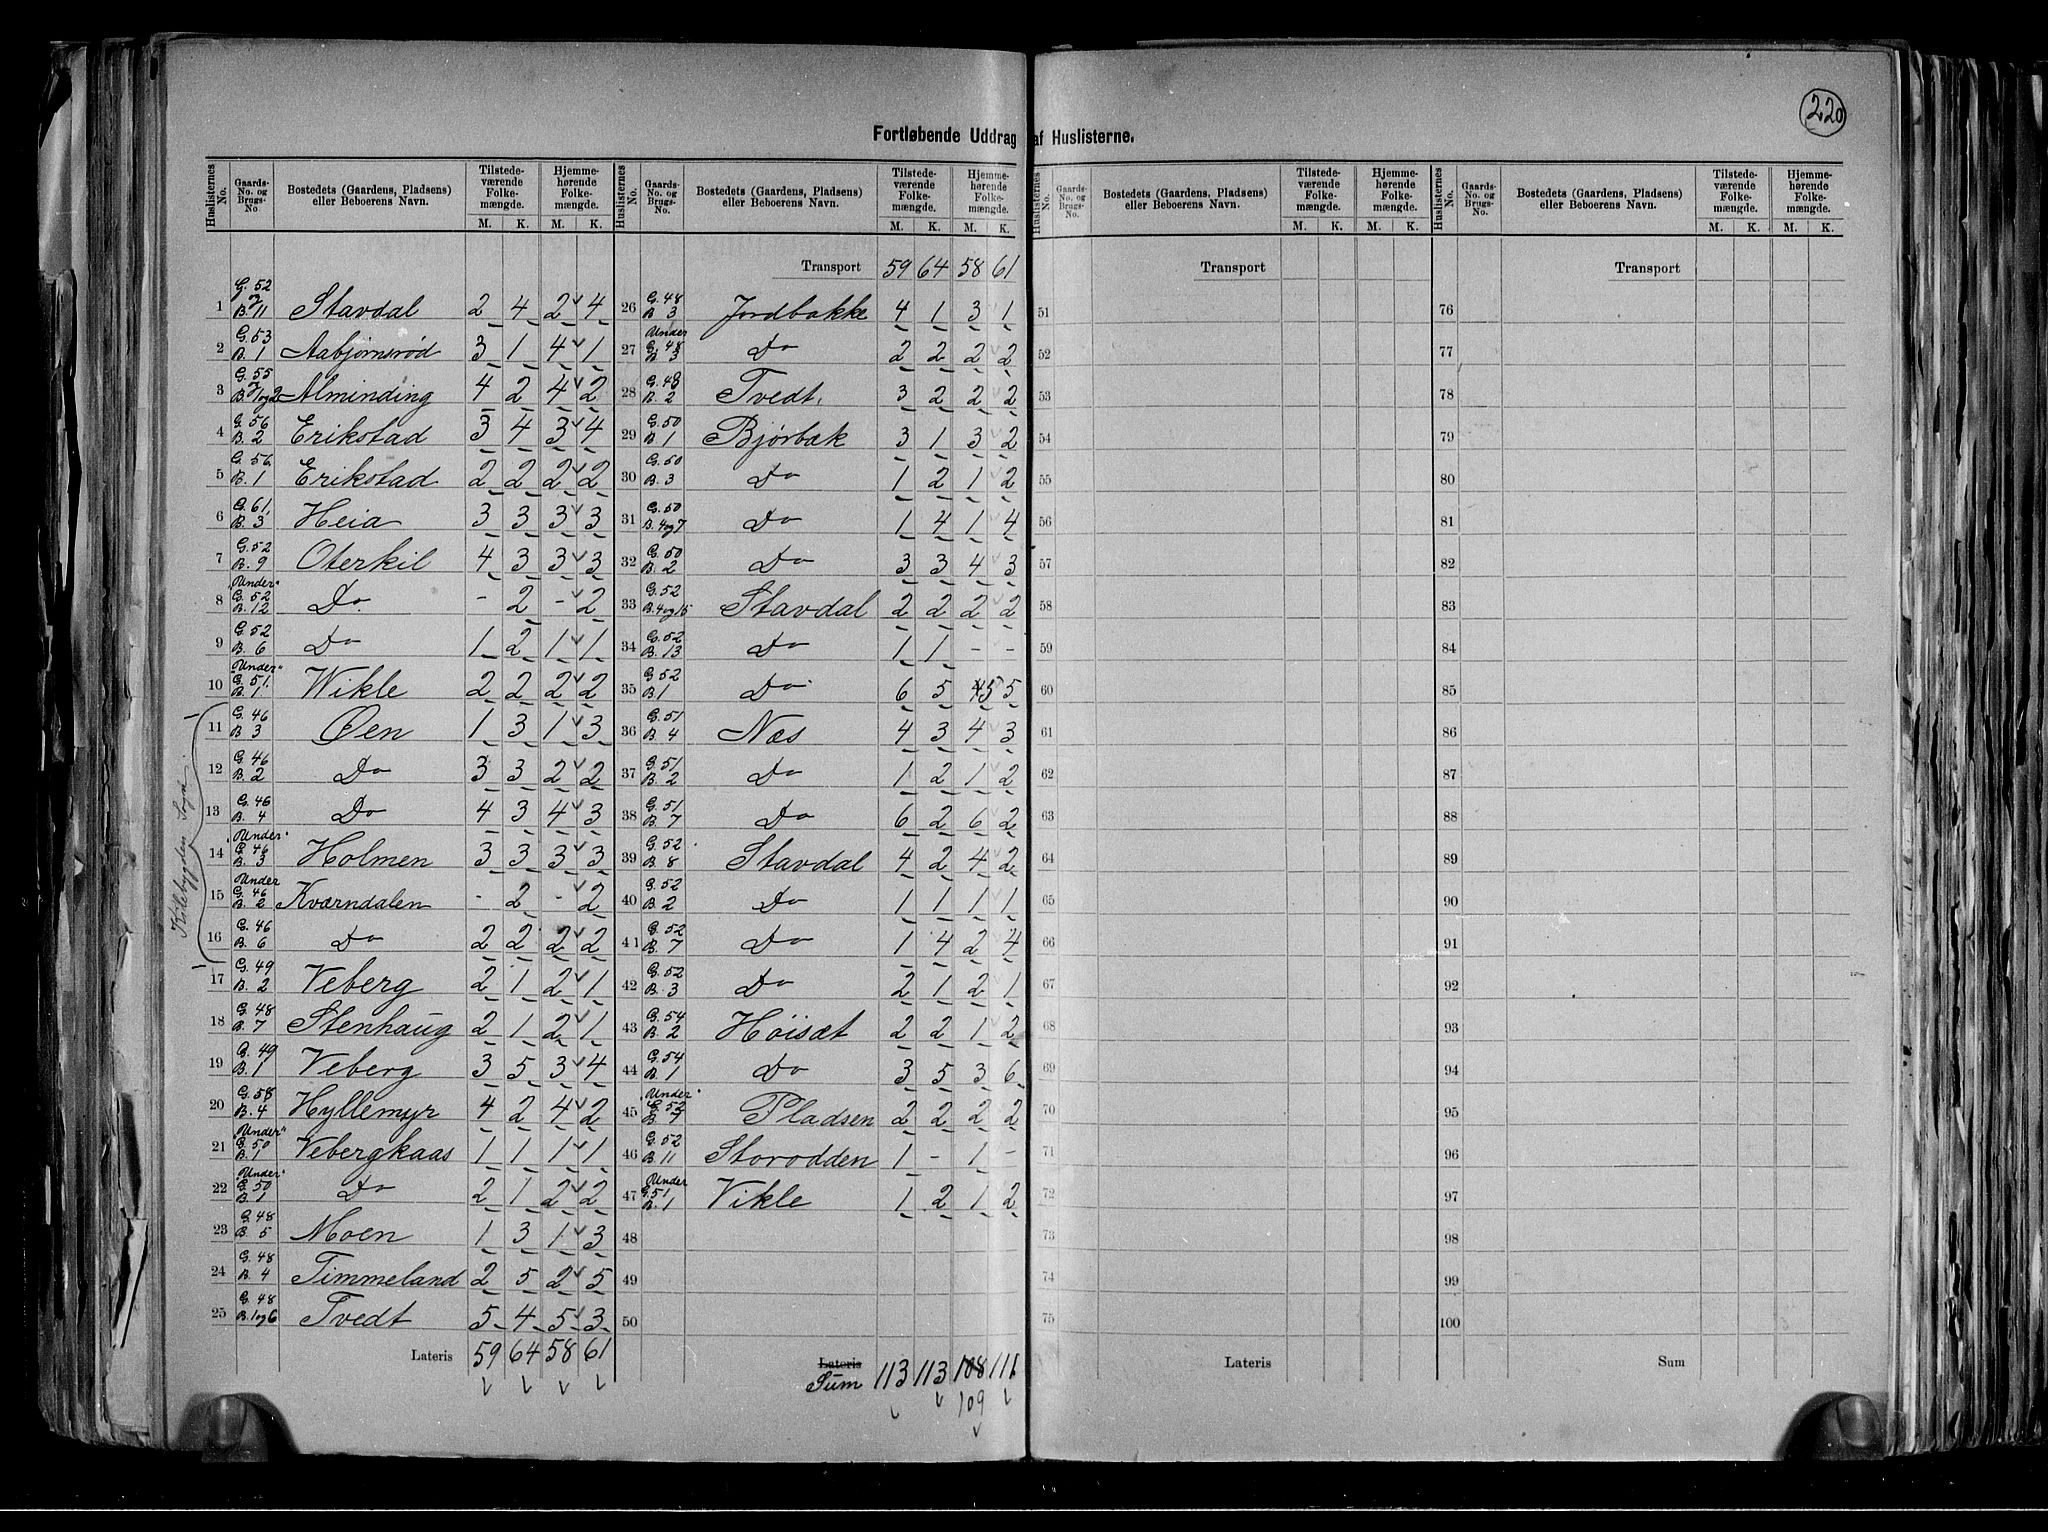 220
Fortløbende Uddrag af Huslisterne.
Huslisternes No. | Gaards-No. og Brugs-No. | Bostedets (Gaardens, Pladsens) eller Beboerens Navn. | Tilstedeværende Folkemængde. M. K. | Hjemmehørende Folkemængde. M. K.
1 G. 52 B. 11 Stavdal 2 4 2 4
2 G. 53 B. 1 Aabjørnsrød 3 1 4 1
3 G. 55 B. 1 og 2 Alminding 4 2 4 2
4 G. 56 B. 2 Erikstad 3 4 3 4
5 G. 56. B. 1 Erikstad 2 2 2 2
6 G. 61. B. 3 Heia 3 3 3 3
7 G. 52 B. 9 Oterkil 4 3 3 3
8 "Under" G. 52 B. 12 Do. - 2 - 2
9 G. 52 B. 6 Do 1 2 1 1
10 Under" G. 51. B. 1 Wikle 2 2 2 2
Kilebygden Sogn.
11 G. 46 B. 3 Øen 1 3 1 3
12 G. 46 B. 2 Do 3 3 2 2
13 G. 46 B. 4 Do 4 3 4 3
14 "Under" G. 46 B. 3 Holmen 3 3 3 3
15 Under G. 46 B. 2 Kværndalen - 2 - 2
16 G. 46 B. 6 Do 2 2 2 2
17 G. 49 B. 2 Veberg 2 1 2 1
18 G. 48 B. 7 Stenhaug 2 1 2 1
19 G. 49 B. 1 Veberg 3 5 3 4
20 G. 58 B. 4 Hyllemyr 4 2 4 2
21 "Under" G. 50 B. 1 Vebergkaas 1 1 1 1
22 "Under" G. 50 B. 1 Do 2 1 2 2
23 G. 48 B. 5 Moen 1 3 1 3
24 G. 48 B. 4 Timmeland 2 5 2 5
25 G. 48 B. 1 og 6 Tvedt 5 4 5 3
Lateris 59 64 58 61
Huslisternes No. | Gaards-No. og Brugs-No. | Bostedets (Gaardens, Pladsens) eller Beboerens Navn. | Tilstedeværende Folkemængde. M. K. | Hjemmehørende Folkemængde. M. K.
Transport 59 64 58 61
26 G. 48 B 3 Jordbakke 4 1 3 1
27 Under G. 48 B. 3 Do 2 2 2 2
28 G. 48 B. 2 Tvedt. 3 2 2 2
29 G. 50 B. 1 Bjørbæk 3 1 3 2
30 G. 50 B. 3 Do 1 2 1 2
31 G. 50 B. 4 og 7 Do 1 4 1 4
32 G. 50 B. 2 Do 3 3 4 3
33 G. 52 B. 4 og 15 Stavdal 2 2 2 2
34 G. 52 B. 13 Do 1 1 - -
35 G 52 B. 1 Do 6 5 4 5 5
36 G. 51 B. 4 Næs 4 3 4 3
37 G. 51 B. 2 Do 1 2 1 2
38 G. 51 B. 7 Do 6 2 6 2
39 G. 52 B. 8 Stavdal 4 2 4 2
40 G. 52 B. 2 Do 1 1 1 1
41 G. 52 B. 7 Do 1 4 2 4
42 G. 52 B. 3 Do 2 1 2 1
43 G. 54 B. 2 Høisæt 2 2 1 2
44 G. 54 B. 1 Do 3 5 3 6
45 "Under" G. 52 B. 7 Pladsen 2 2 2 2
46 G. 52 B. 11 Storodden 1 - 1 -
47 Under G. 51 B. 1 Vikle 1 2 1 2
48
49
50
Lateris
Sum 113 113 108 111
109
Huslisternes No. | Gaards-No. og Brugs-No. | Bostedets (Gaardens, Pladsens) eller Beboerens Navn. | Tilstedeværende Folkemængde. M. K. | Hjemmehørende Folkemængde. M. K.
Transport
51
52
53
54
55
56
57
58
59
60
61
62
63
64
65
66
67
68
69
70
71
72
73
74
75
Lateris
Huslisternes No. | Gaards-No. og Brugs-No. | Bostedets (Gaardens, Pladsens) eller Beboerens Navn. | Tilstedeværende Folkemængde. M. K. | Hjemmehørende Folkemængde. M. K.
Transport
76
77
78
79
80
81
82
83
84
85
86
87
88
89
90
91
92
93
94
95
96
97
98
99
100
Sum